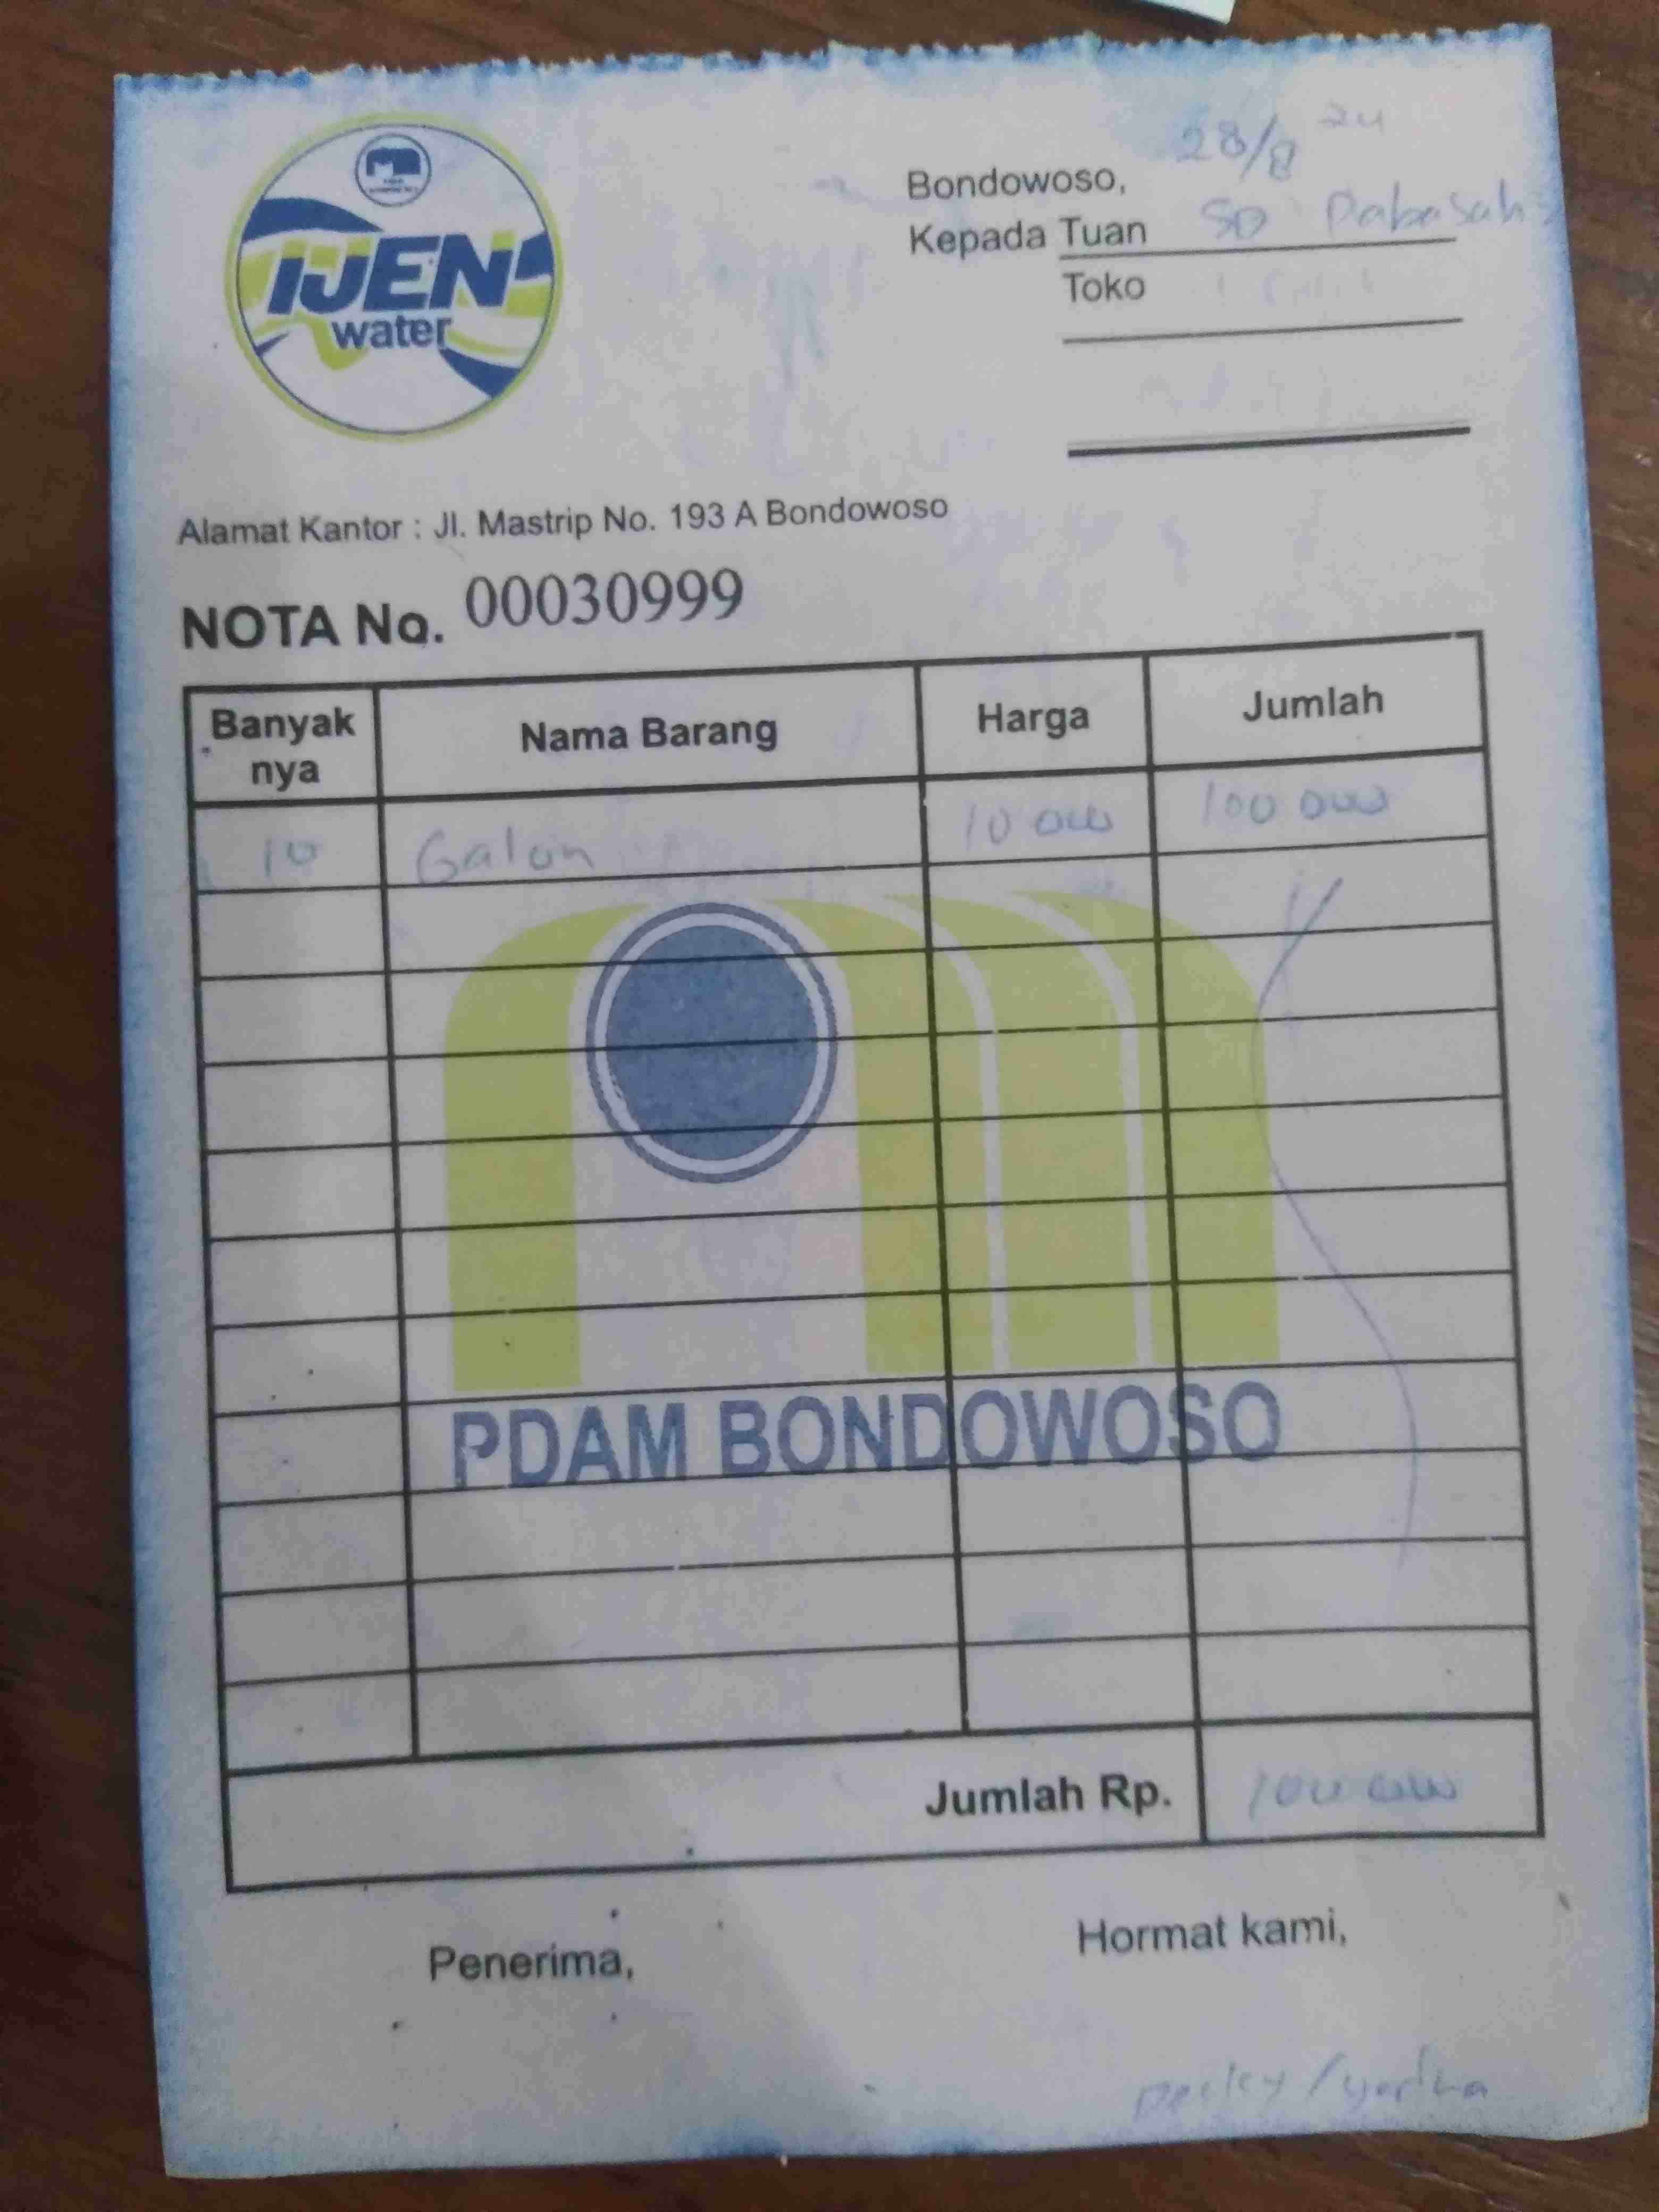 IJEN
water
Bondowoso, 28/8 24
Kepada Tuan SD Dabasah
Toko
Alamat Kantor : Jl. Mastrip No. 193 A Bondowoso
NOTA No. 00030999
Banyak nya Nama Barang Harga Jumlah
10 Galon 10 000 100 000
PDAM BONDOWOSO
Jumlah Rp. 100 000
Penerima, Hormat kami,